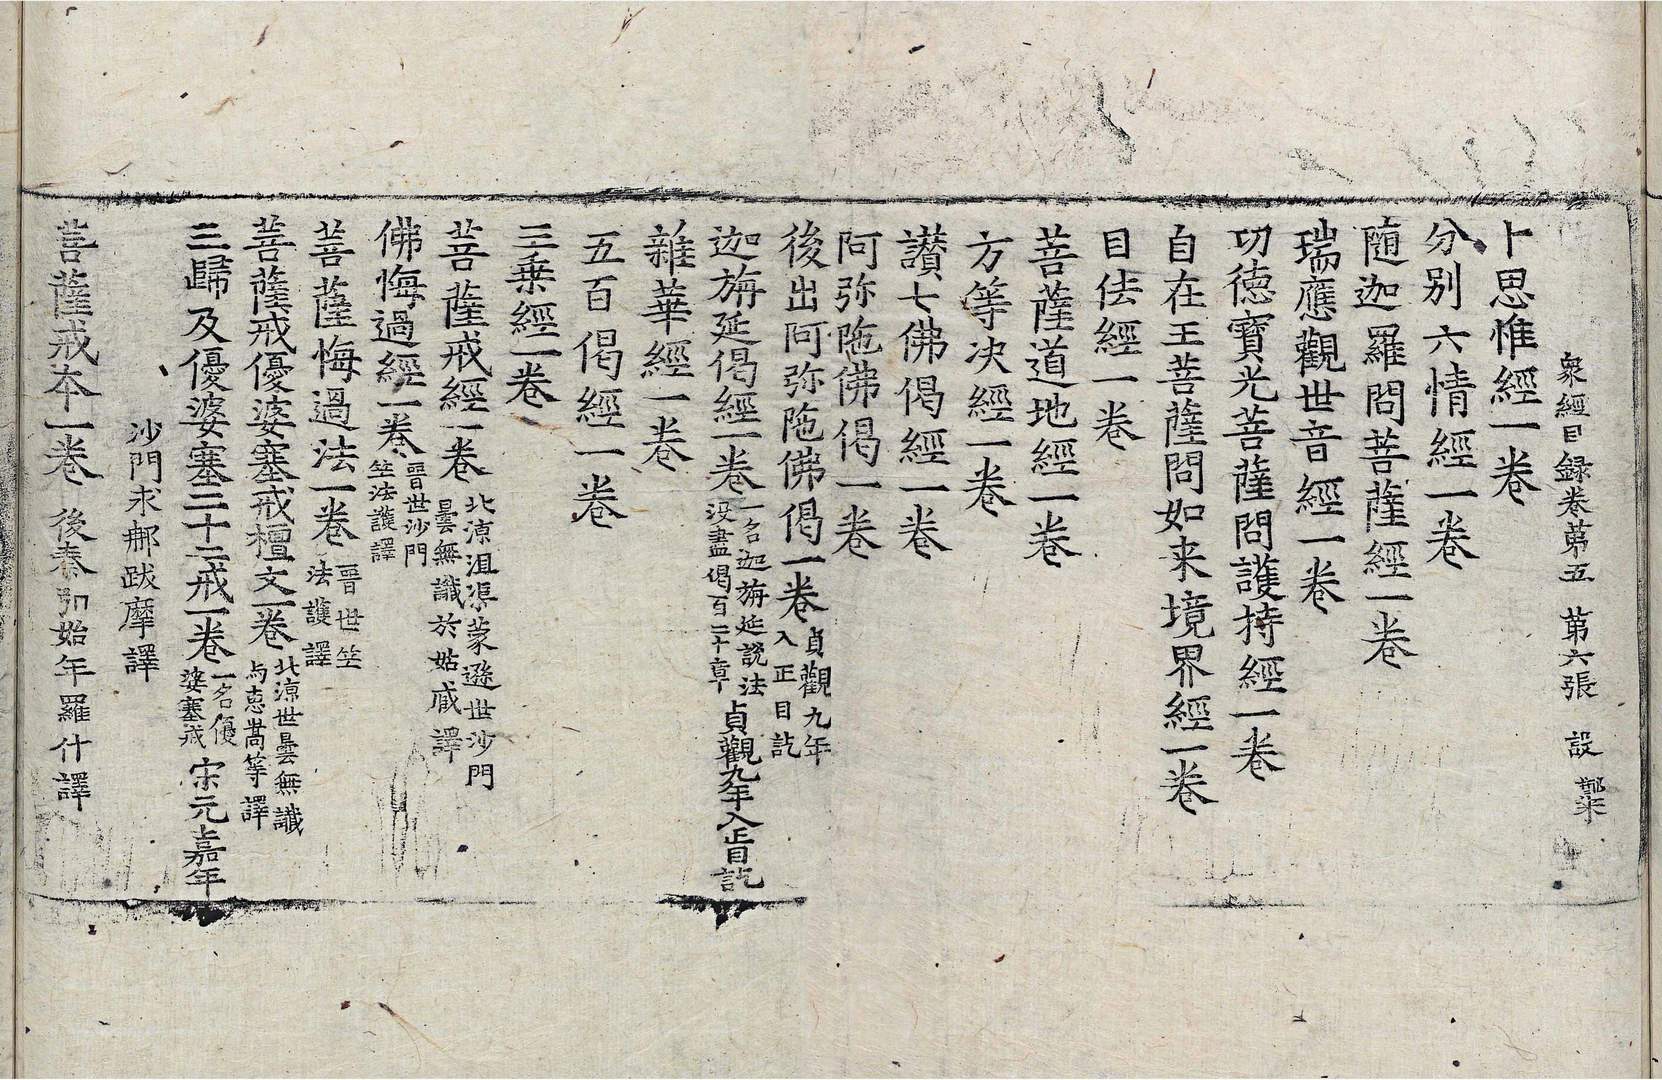 衆經目録卷苐五 苐六張 設
卜思惟經一卷
分别六情經一卷
随迦羅問菩薩經一卷
瑞應觀世音經一卷
功德寶光菩薩問護持經一卷
自在王菩薩問如来境界經一卷
目佉經一卷
菩薩道地經一卷
方等决經一卷
讃七佛偈經一卷
阿弥陁佛偈一卷
後出阿弥陁佛偈一卷 貞觀九年入正目訖
迦旃延偈經一卷 一名迦旃延說法没盡偈百二十章 貞觀九年入正目訖
雜華經一卷
五百偈經一卷
三乗經一卷
菩薩戒經一卷 北涼沮渠蒙遜世沙門曇無讖於姑臧譯
佛悔過經一卷 晉世沙門竺法護譯
菩薩悔過法一卷 晉世竺法護譯
菩薩戒優婆塞戒檀文一卷 北涼世曇無讖与恵嵩等譯
三歸及優婆塞二十二戒一卷 一名優婆塞戒 宋元嘉年
沙門求那跋摩譯
菩薩戒本一卷 後秦弘始年羅什譯